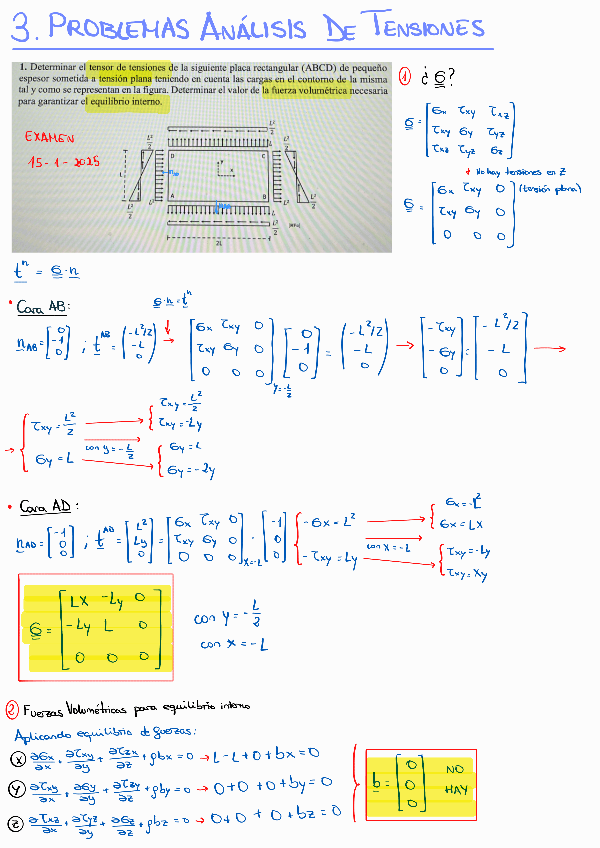 3. PROBLEMAS ANÁLISIS DE TENSIONES
1. Determinar el tensor de tensiones de la siguiente placa rectangular (ABCD) de pequeño
espesor sometida a tensión plana teniendo en cuenta las cargas en el contorno de la misma
tal y como se representan en la figura. Determinar el valor de la fuerza volumétrica necesaria
para garantizar el equilibrio interno.
EXAMEN
15-1-2025
L²/2
L
D C
y
x
A B
L²/2
2L
① ¿σ?
σ = [σx τxy τxz
τxy σy τyz
τxz τyz σz]
↓ No hay tensiones en z
σ = [σx τxy 0
τxy σy 0
0 0 0] (tensión plana)
tⁿ = σ·n
• Cara AB:
σ·n = tⁿ
n_AB = [0 -1 0] ; t^AB = (-L²/2 -L 0) → [σx τxy 0
τxy σy 0
0 0 0] y=-L/2 [0 -1 0] = (-L²/2 -L 0) → [-τxy -σy 0] = [-L²/2 -L 0] →
→ { τxy = L²/2 → { τxy = L²/2
τxy = -Ly
con y = -L/2
σy = L → { σy = L
σy = -2y
• Cara AD:
n_AD = [-1 0 0] ; t^AD = [L² Ly 0] = [σx τxy 0
τxy σy 0
0 0 0] x=-L · [-1 0 0] { -σx = L² → { σx = -L²
σx = LX
con x = -L
-τxy = Ly → { τxy = -Ly
τxy = xy
σ = [LX -Ly 0
-Ly L 0
0 0 0]
con y = -L/2
con x = -L
② Fuerzas Volumétricas para equilibrio interno
Aplicando equilibrio de fuerzas:
Ⓧ ∂σx/∂x + ∂τxy/∂y + ∂τzx/∂z + ρbx = 0 → L - L + 0 + bx = 0
Ⓨ ∂τxy/∂x + ∂σy/∂y + ∂τzy/∂z + ρby = 0 → 0 + 0 + 0 + by = 0
Ⓩ ∂τxz/∂x + ∂τyz/∂y + ∂σz/∂z + ρbz = 0 → 0 + 0 + 0 + bz = 0
b = [0 0 0] NO
HAY